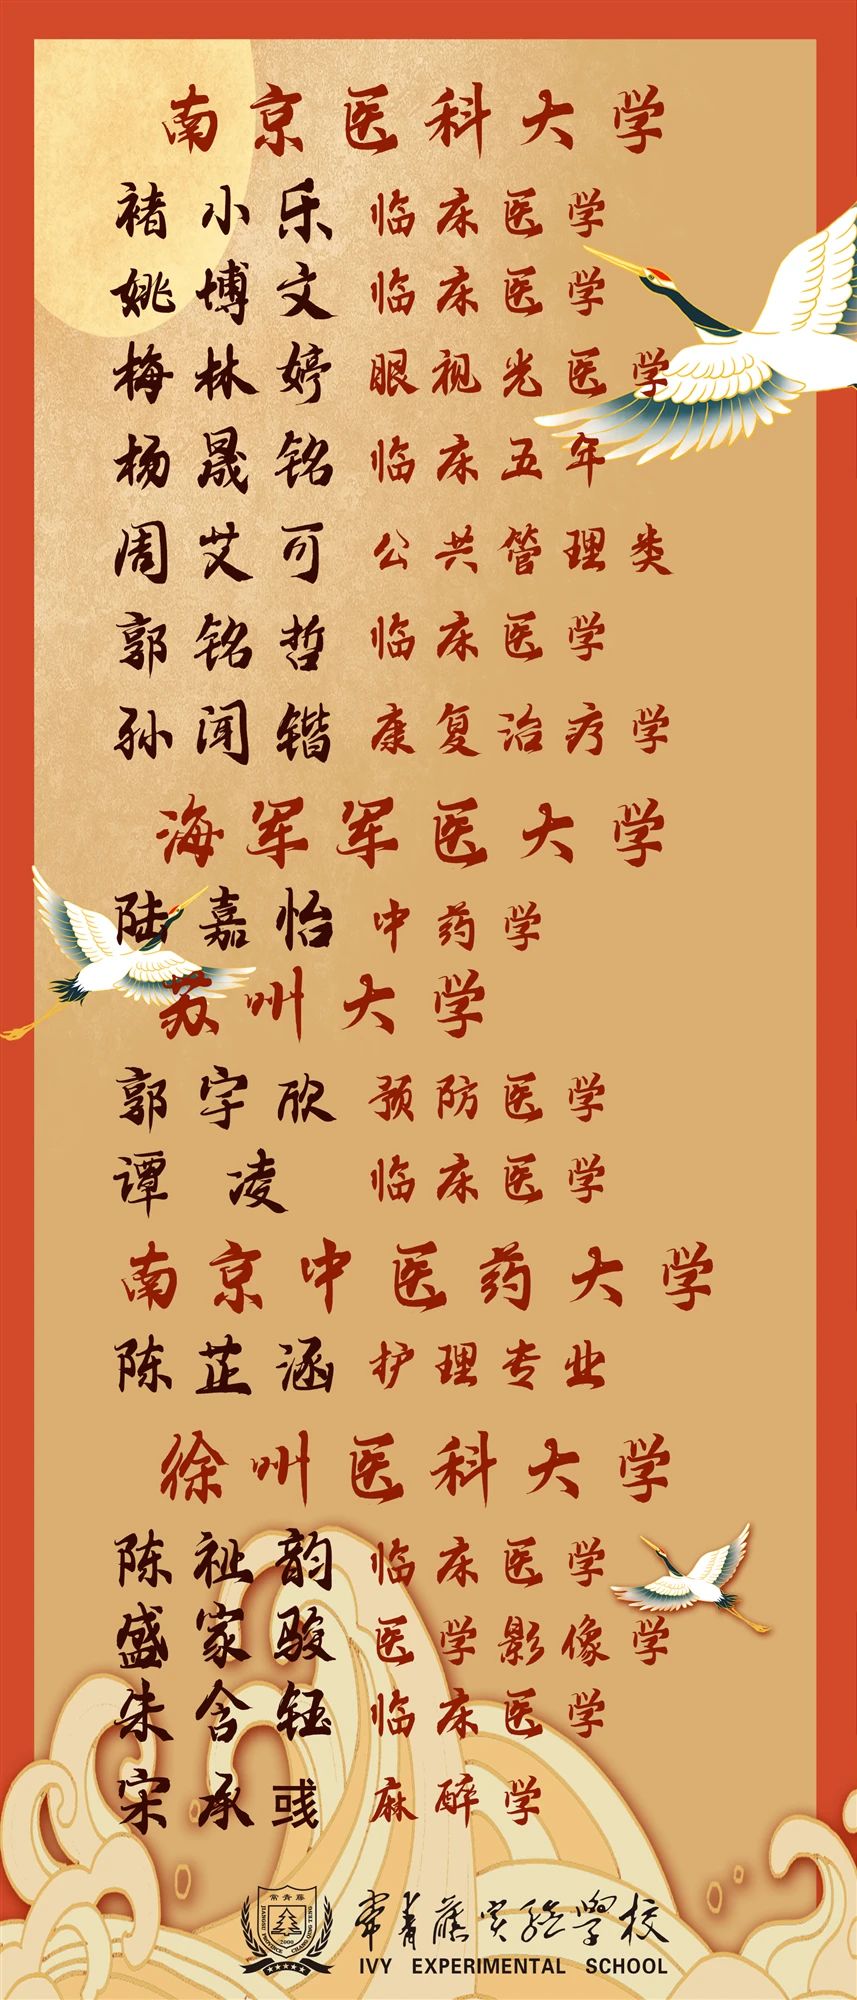 南京医科大学
褚小乐 临床医学
姚博文 临床医学
梅林婷 眼视光医学
杨晟铭 临床五年
周艾可 公共管理类
郭铭哲 临床医学
孙闻锴 康复治疗学
海军军医大学
陆嘉怡 中药学
苏州大学
郭宇欣 预防医学
谭凌 临床医学
南京中医药大学
陈芷涵 护理专业
徐州医科大学
陈祉韵 临床医学
盛家骏 医学影像学
朱含钰 临床医学
宋承彧 麻醉学
常青藤
JIANGSU PROVINCE CHANG QING TENG
2000
常青藤实验学校
IVY EXPERIMENTAL SCHOOL